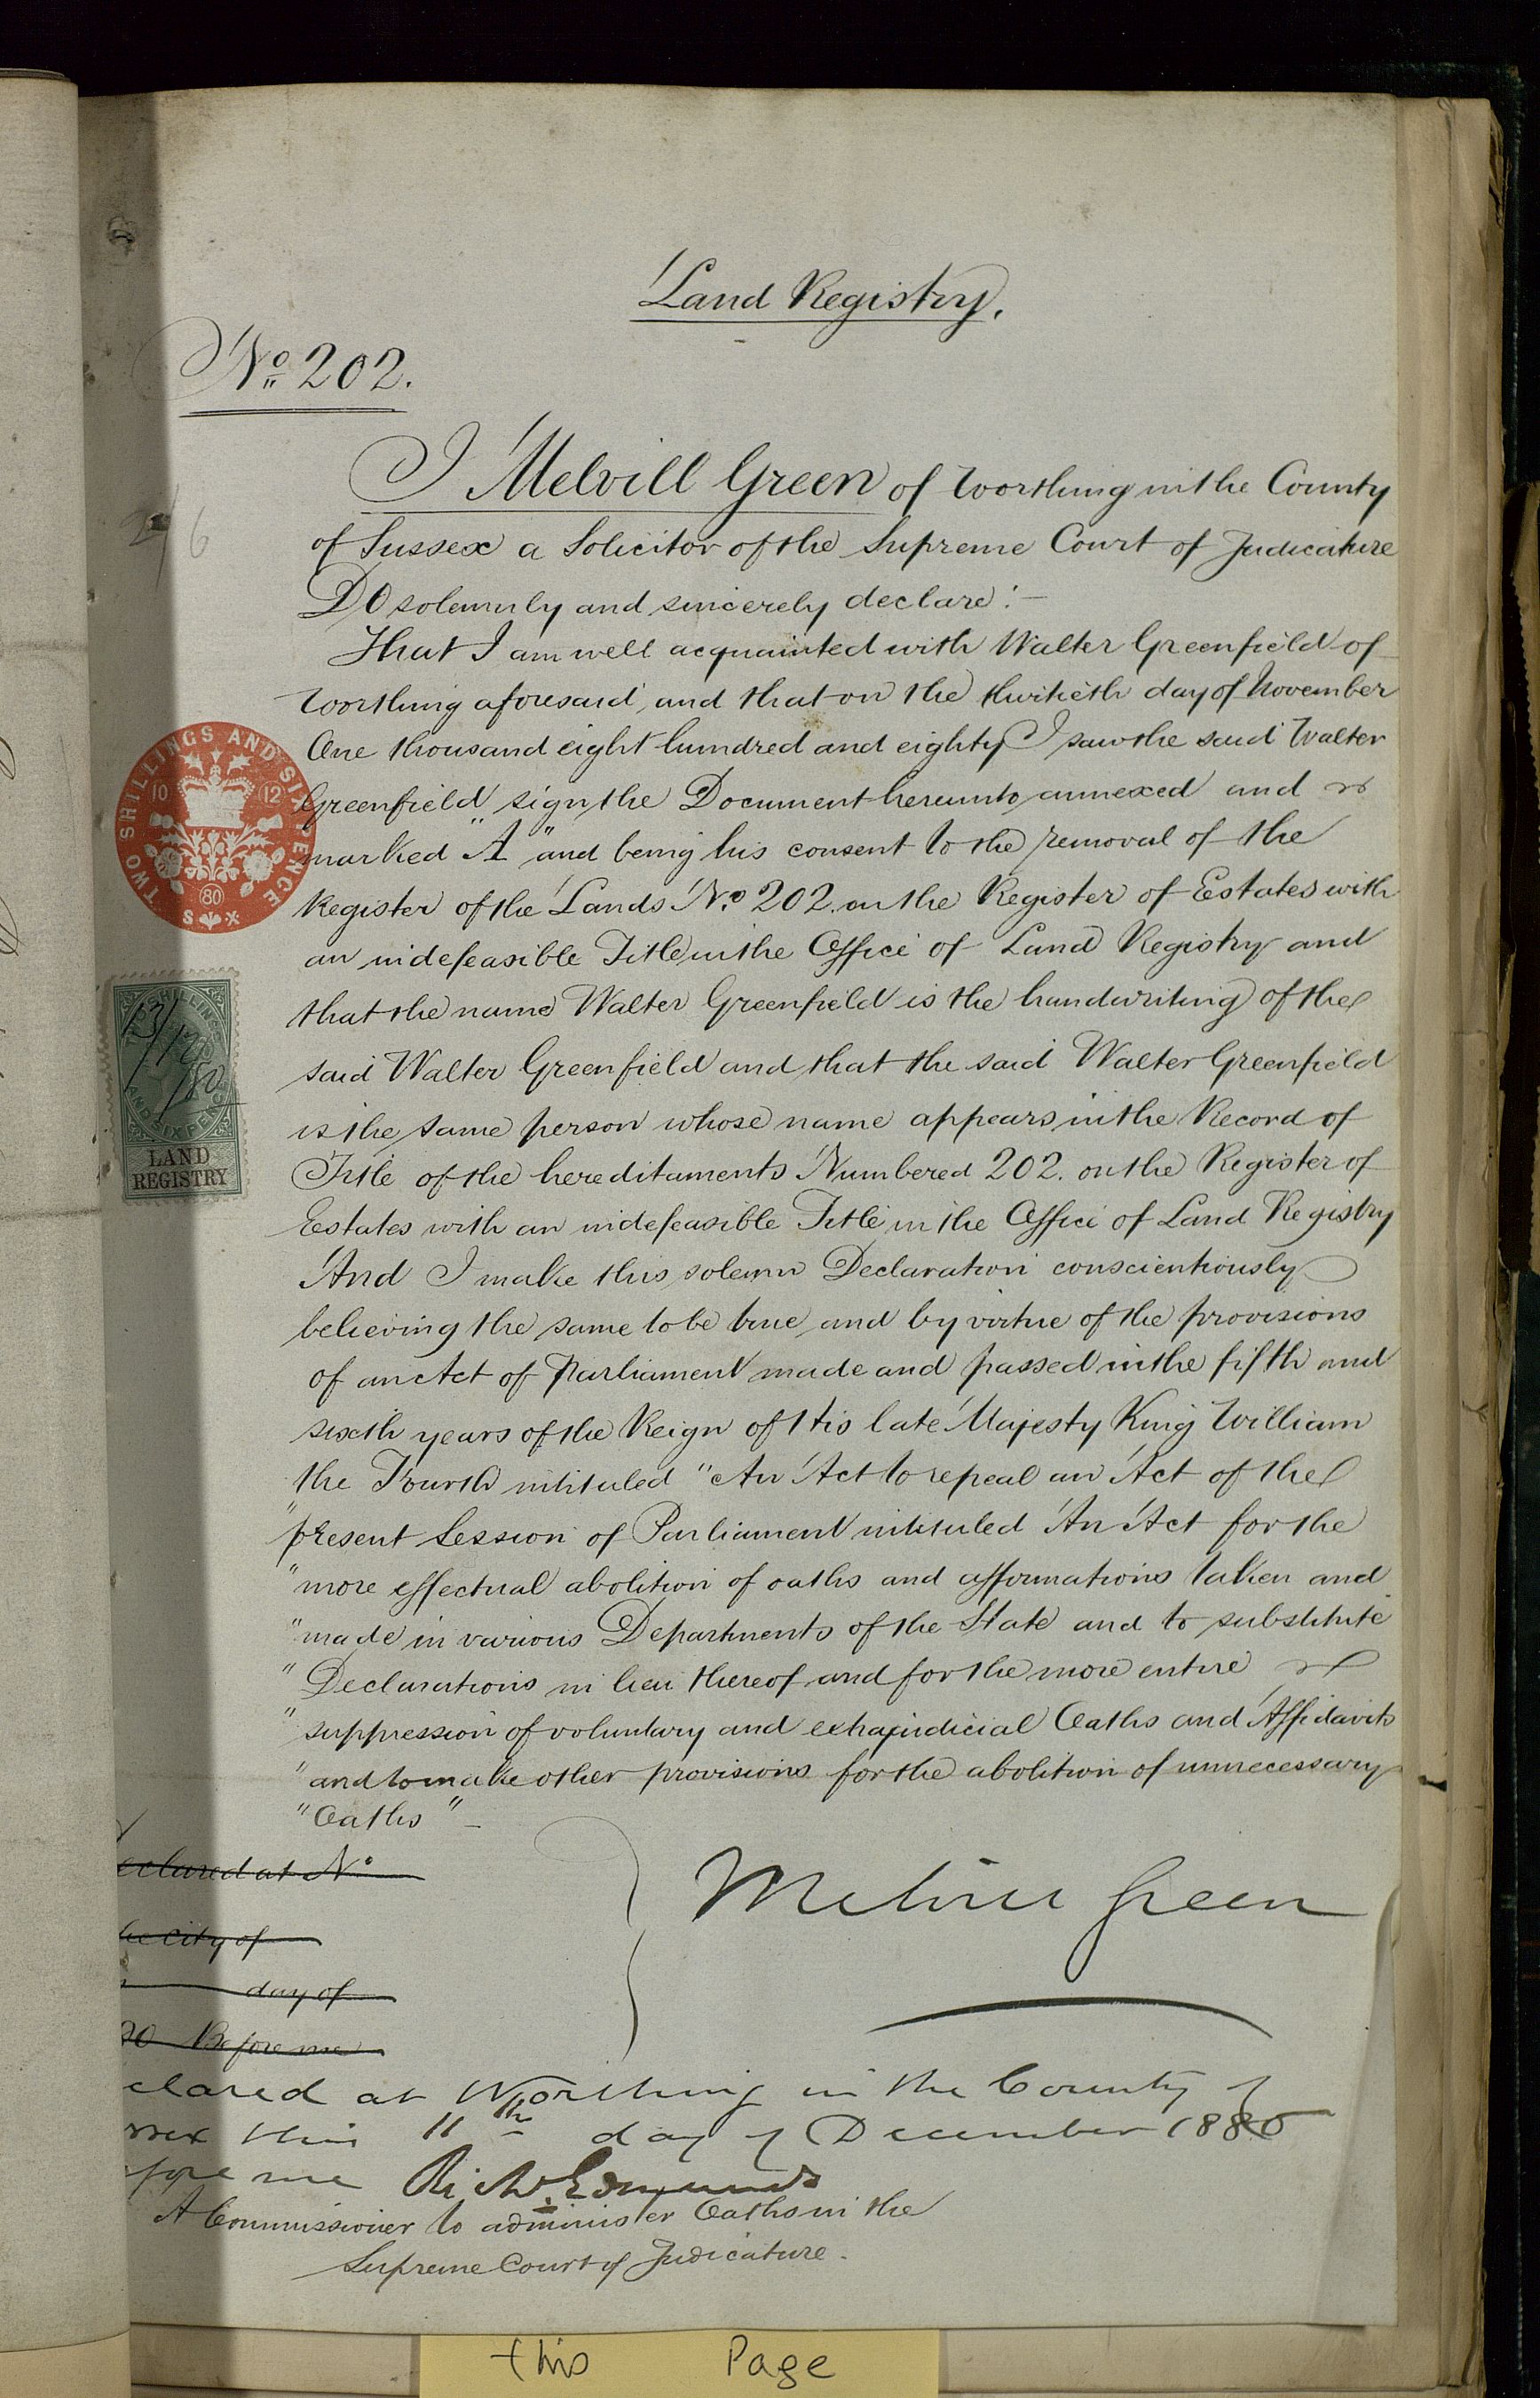 Land Registry.
No. 202.
2/6
I Melvill Green of Worthing in the County
of Sussex a Solicitor of the Supreme Court of Judicature
DO solemnly and sincerely declare:—
That I am well acquainted with Walter Greenfield of
Worthing aforesaid, and that on the thirtieth day of November
One thousand eight hundred and eighty I saw the said Walter
Greenfield sign the Document hereunto annexed and
marked "A" and being his consent to the removal of the
Register of the Lands No. 202. on the Register of Estates with
an indefeasible Title in the Office of Land Registry and
that the name Walter Greenfield is the handwriting of the
said Walter Greenfield and that the said Walter Greenfield
is the same person whose name appears in the Record of
Title of the hereditaments Numbered 202. on the Register of
Estates with an indefeasible Title in the Office of Land Registry
And I make this solemn Declaration conscientiously
believing the same to be true and by virtue of the provisions
of an Act of Parliament made and passed in the fifth and
sixth years of the Reign of His late Majesty King William
the Fourth intituled "An Act to repeal an Act of the
"present Session of Parliament intituled An Act for the
"more effectual abolition of oaths and affirmations taken and
"made in various Departments of the State and to substitute
"Declarations in lieu thereof and for the more entire
"suppression of voluntary and extrajudicial Oaths and Affidavits
"and to make other provisions for the abolition of unnecessary
"Oaths" —
eclared at No.
he City of
day of
80 Before me
Melvill Green
clared at Worthing in the County of
ssex this 11th day of December 1880
fore me Richd. Edmunds
A Commissioner to administer Oaths in the
Supreme Court of Judicature.
TWO SHILLINGS AND SIXPENCE
10 12
80
S X
TWO SHILLINGS
AND SIXPENCE
13/12/80
LAND
REGISTRY
this Page